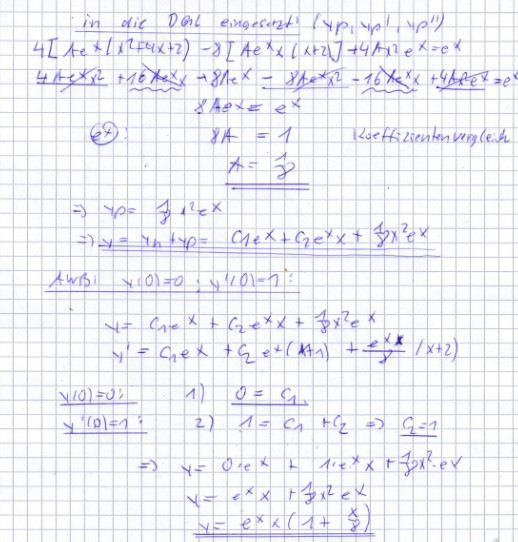 in die DGL eingesetzt: (yp, yp', yp'')
4[Ae^x(x²+4x+2) -8[Ae^x x(x+2)]+4Ax²e^x=e^x
4Ae^x x² +16Ae^x x +8Ae^x - 8Ae^x x² -16Ae^x x +4Ax²e^x = e^x
8Ae^x = e^x
e^x: 8A = 1 Koeffizientenvergleich
A = 1/8
=> yp = 1/8 x²e^x
=> y = yh + yp = C1e^x + C2e^x x + 1/8 x²e^x
AWB: y(0)=0 ; y'(0)=1:
y = C1e^x + C2e^x x + 1/8 x²e^x
y' = C1e^x + C2 e^x(x+1) + e^x x/8 (x+2)
y(0)=0: 1) 0 = C1
y'(0)=1: 2) 1 = C1 + C2 => C2=1
=> y = 0·e^x + 1·e^x x + 1/8 x²·e^x
y = e^x x + 1/8 x² e^x
y = e^x x (1 + x/8)